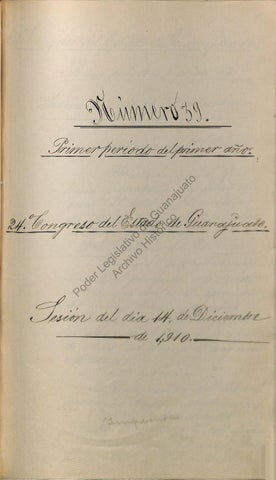 Número 39.
Primer periodo del primer año.
24.º Congreso del Estado de Guanajuato.
Poder Legislativo de Guanajuato
Archivo Histórico
Sesión del dia 14 de Diciembre
de 1910.